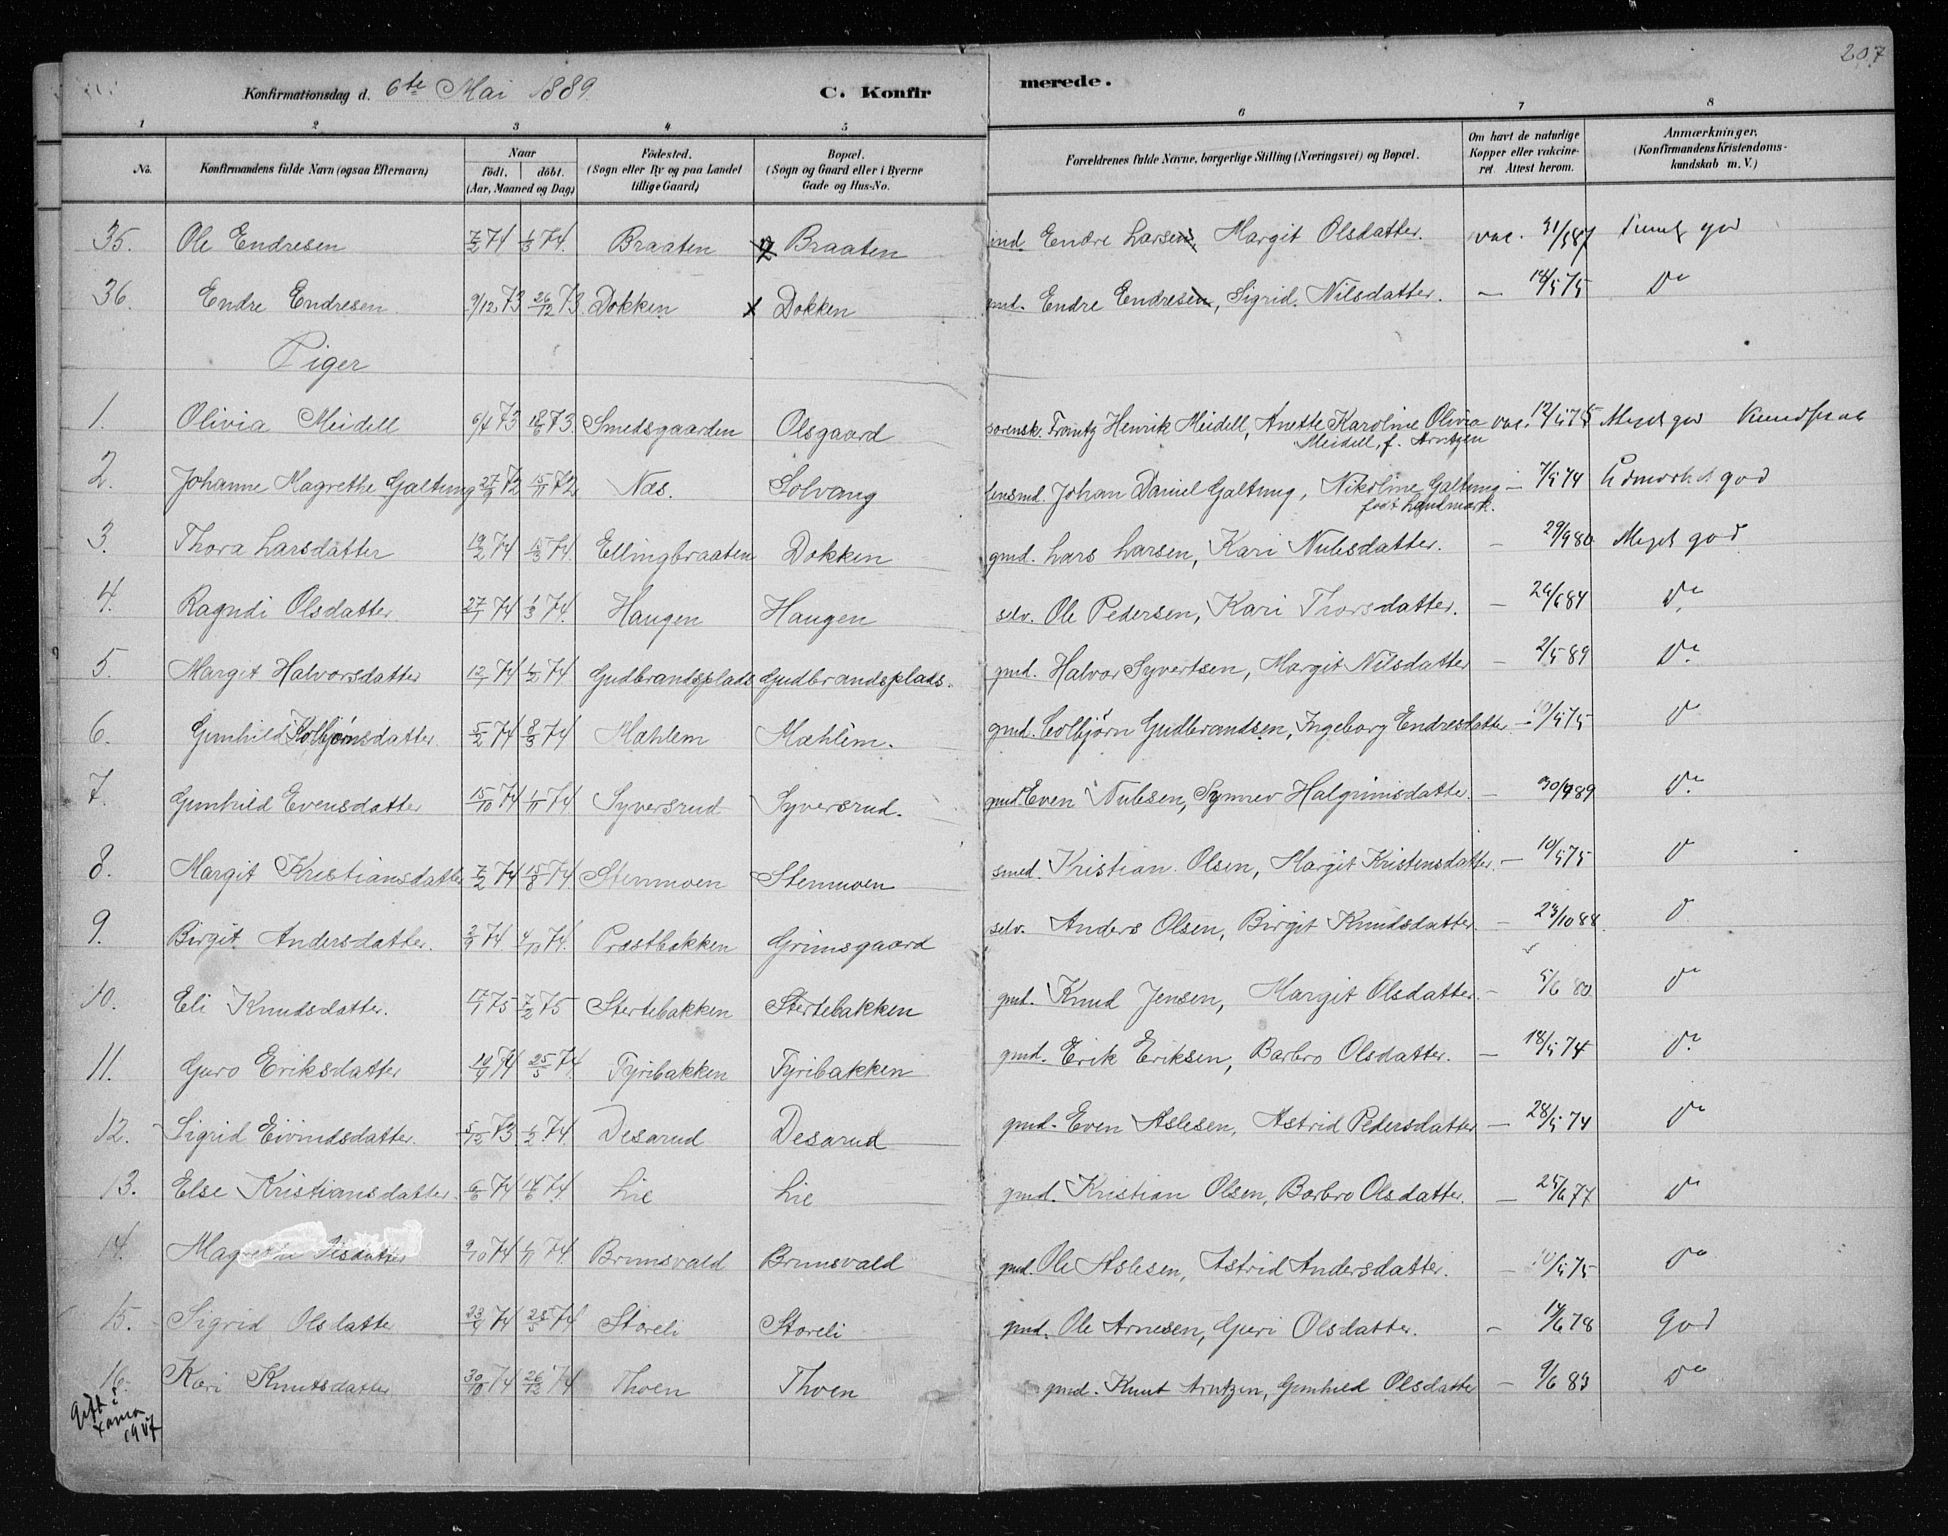 207
Konfirmationsdag d. 6te Mai 1889. C. Konfirmerede.
1 2 3 4 5 6 7 8
No. Konfirmandens fulde Navn (ogsaa Efternavn) Naar födt. döbt. (Aar, Maaned og Dag) Födested. (Sogn eller By og paa Landet tillige Gaard) Bopæl. (Sogn og Gaard eller i Byerne Gade og Hus-No. Forældrenes fulde Navne, borgerlige Stilling (Næringsvei) og Bopæl. Om havt de naturlige Kopper eller vakcineret. Attest herom. Anmærkninger. (Konfirmandens Kristendomskundskab m. V.)
35. Ole Endresen 74 74. Braaten Braaten ind. Endre Larsen, Margit Olsdatter. vac. 31/3 87 god
36. Endre Endresen 9/12 73 26/12 73. Dokken x Dokken gmd. Endre Endresen, Sigrid Nilsdatter. — 14/5 75 Do
Piger
1. Olivia Meidell 6/4 73 73. Smedsgaarden Olsgaard sorensk. Frantz Henrik Meidell, Anette Karoline Olivia Meidell, f. Arntzen vac. 12/5 75 Meget god Kundskab
2. Johanne Magrethe Galtung 27/9 72 15/11 72 Næs. Solvang lensmd. Johan Daniel Galtung, Nikoline Galtung født Landmark. — 7/5 74 god
3. Thora Larsdatter 19/2 74 15/3 74. Ellingbraaten Dokken gmd. Lars Larsen, Kari Nubsdatter. — 29/9 80 Meget god
4. Ragndi Olsdatter 27/1 74 1/3 74. Haugen Haugen selv. Ole Pedersen, Kari Thorsdatter. — 26/6 84 Do
5. Margit Halvorsdatter 12/1 74 74 Gudbrandsplads Gudbrandsplads. gmd. Halvor Syvertsen, Margit Nilsdatter — 2/5 89 Do
6. Gunhild Kolbjörnsdatter 5/2 74 8/3 74 Mæhlem Mæhlem. gmd. Colbjörn Gudbrandsen, Ingeborg Endresdatter — 10/5 75 Do
7. Gunhild Evensdatter 15/10 74 1/11 74 Syversrud Syversrud. gmd. Even Nubsen, Synnev Halgrimsdatter. — 30/4 89 Do
8. Margit Kristiansdatter 7/2 74 15/8 74 Stenmoen Stenmoen smed. Kristian Olsen, Margit Kristensdatter. — 10/5 75 Do
9. Birgit Andersdatter. 2/9 74 4/10 74. Præstbakken Grimsgaard selv. Anders Olsen, Birgit Knudsdatter. — 23/10 88. Do
10. Eli Knudsdatter. 75 7/2 75 Stertebakken Stertebakken gmd. Knud Jensen, Margit Olsdatter. — 5/6 80 Do
11. Guro Eriksdatter 19/4 74 25/5 74 Fyribakken Fyribakken gmd. Erik Eriksen, Barbro Olsdatter. — 18/5 74 Do
12. Sigrid Eivindsdatter. 5/12 73 74. Desarud Desarud gmd. Even Aslesen, Astrid Pedersdatter — 28/5 74 Do
13. Else Kristiansdatter. 74 14/6 74. Lie Lie gmd. Kristian Olsen, Barbro Olsdatter. — 25/6 77 Do
14. Magretha 9/10 74 1/11 74. Brunsvald Brunsvald gmd. Ole Aslesen, Astrid Andersdatter. — 10/5 75 Do
15. Sigrid Olsdatter 23/4 74 25/5 74 Storeli Storeli gmd. Ole Arnesen, Guri Olsdatter. — 14/6 78 god
16. Kari Knutsdatter 30/10 74 26/12 74 Thoen Thoen gmd. Knut Arntzen, Gunhild Olsdatter — 9/6 83 Do
gift i
Xania
1907